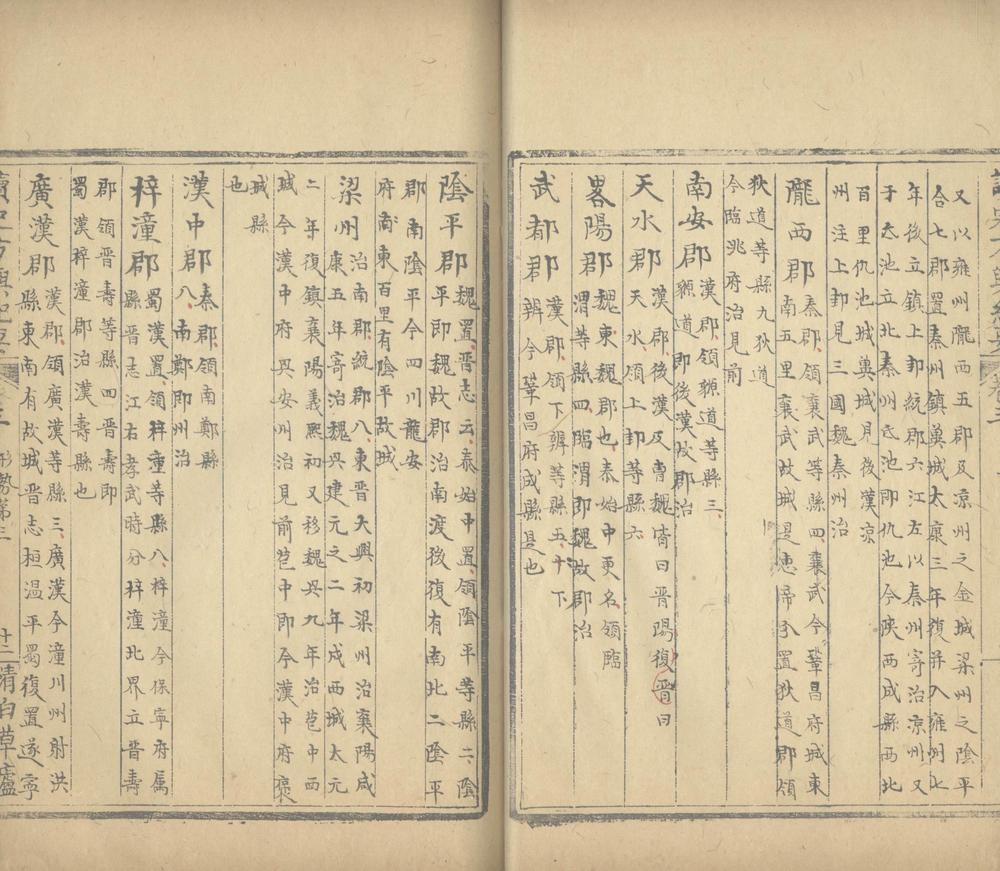 又以雍州隴西五郡及涼州之金城梁州之陰平
合七郡置秦州鎮冀城太康三年復并入雍州七
年後立鎮上邽統郡六江左以秦州寄治涼州又
于氐池立北秦州氐池即仇池今陝西成縣西北
百里仇池城冀城見後漢涼
州注上邽見三國魏秦州治
隴西郡秦郡領襄武等縣四襄武今鞏昌府城東
南五里襄武故城是惠帝分置狄道郡領
狄道等縣九狄道
今臨兆府治見前
南安郡漢郡領豲道等縣三
豲道即後漢故郡治
天水郡漢郡後漢及曹魏皆曰晋陽復晋曰
天水領上邽等縣六
畧陽郡魏東魏郡也泰始中更名領臨
渭等縣四臨渭即魏故郡治
武都郡漢郡領下辨等縣五下
辨今鞏昌府成縣是也
陰平郡魏置晋志云泰始中置領陰平等縣二陰
平即魏故郡治南渡後復有南北二陰平
郡南陰平今四川龍安
府東百里有陰平故城
梁州治南郡統郡八東晋大興初梁州治襄陽咸
康五年寄治魏興建元之二年戍西城太元
二年復鎮襄陽義熙初又移魏興九年治苞中西
城今漢中府興安州治見前苞中即今漢中府褒
城縣
也
漢中郡秦郡領南鄭縣
八南鄭即州治
梓潼郡蜀漢置領梓潼等縣八梓潼今保寧府属
縣晋志江右孝武時分梓潼北界立晋壽
郡領晋壽等縣四晋壽即
蜀漢梓潼郡治漢壽縣也
廣漢郡漢郡領廣漢等縣三廣漢今潼川州射洪
縣東南有故城晋志桓温平蜀復置遂寧
形勢第三
十二
清白草廬